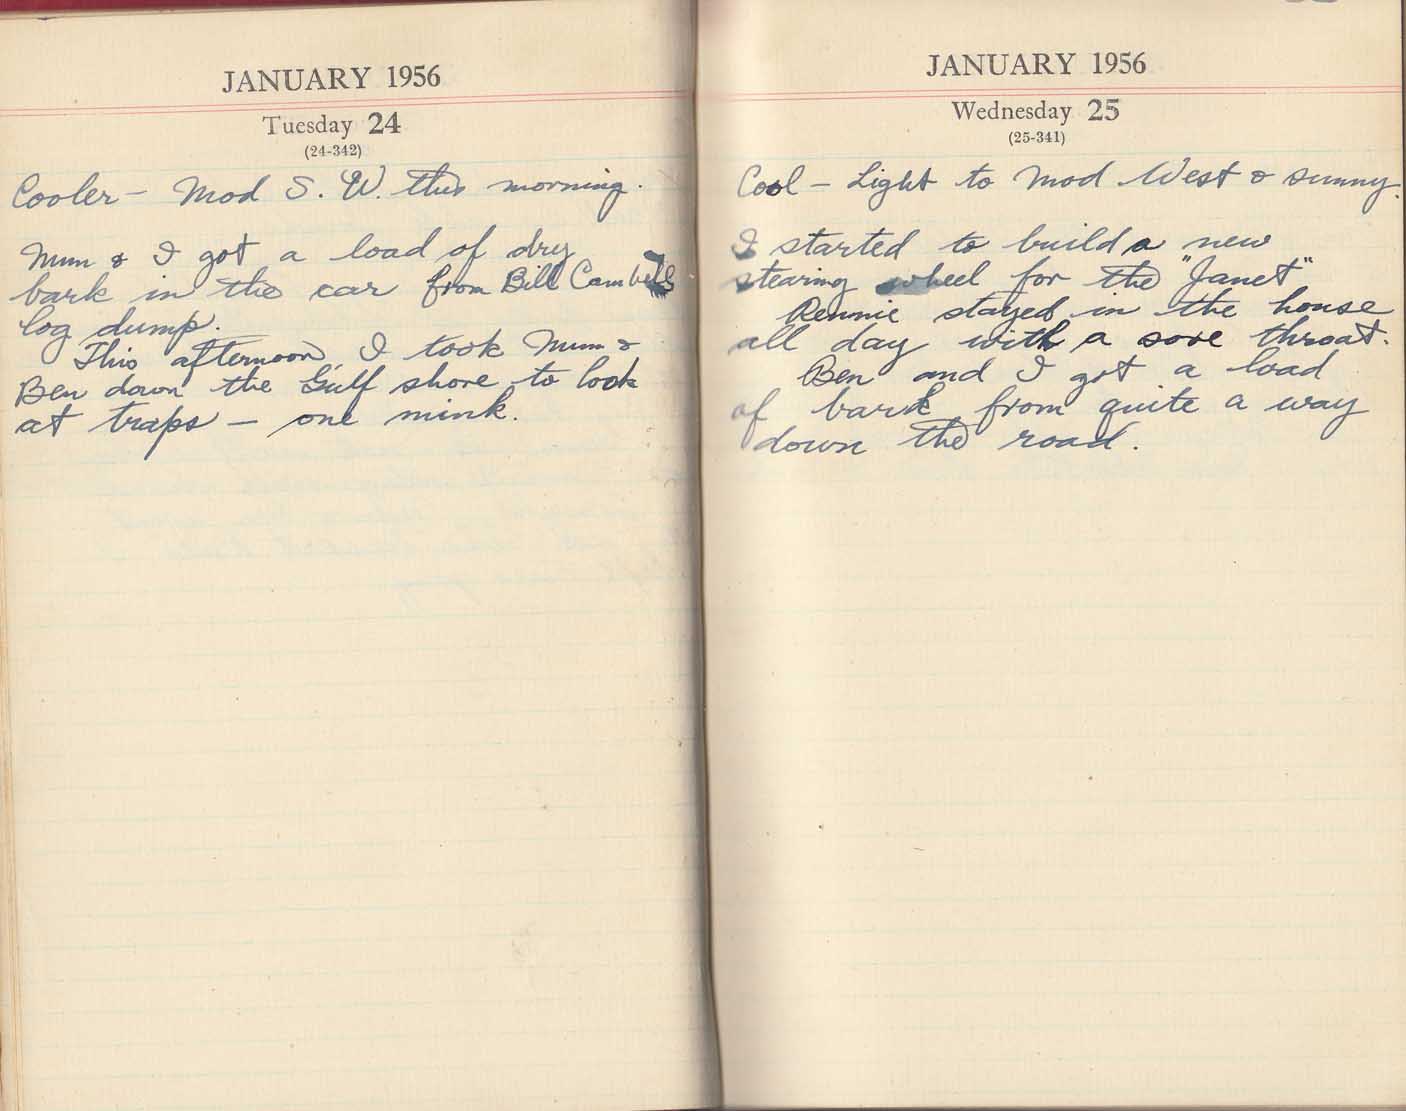 JANUARY 1956
Tuesday 24
(24-342)
Cooler — Mod S. W. this morning.
Mum & I got a load of dry
bark in the car from Bill Cambells
log dump.
This afternoon I took Mum &
Ben down the Gulf shore to look
at traps — one mink.
JANUARY 1956
Wednesday 25
(25-341)
Cool — Light to Mod West & sunny.
I started to build a new
stearing wheel for the "Janet"
Rennie stayed in the house
all day with a sore throat.
Ben and I got a load
of bark from quite a way
down the road.